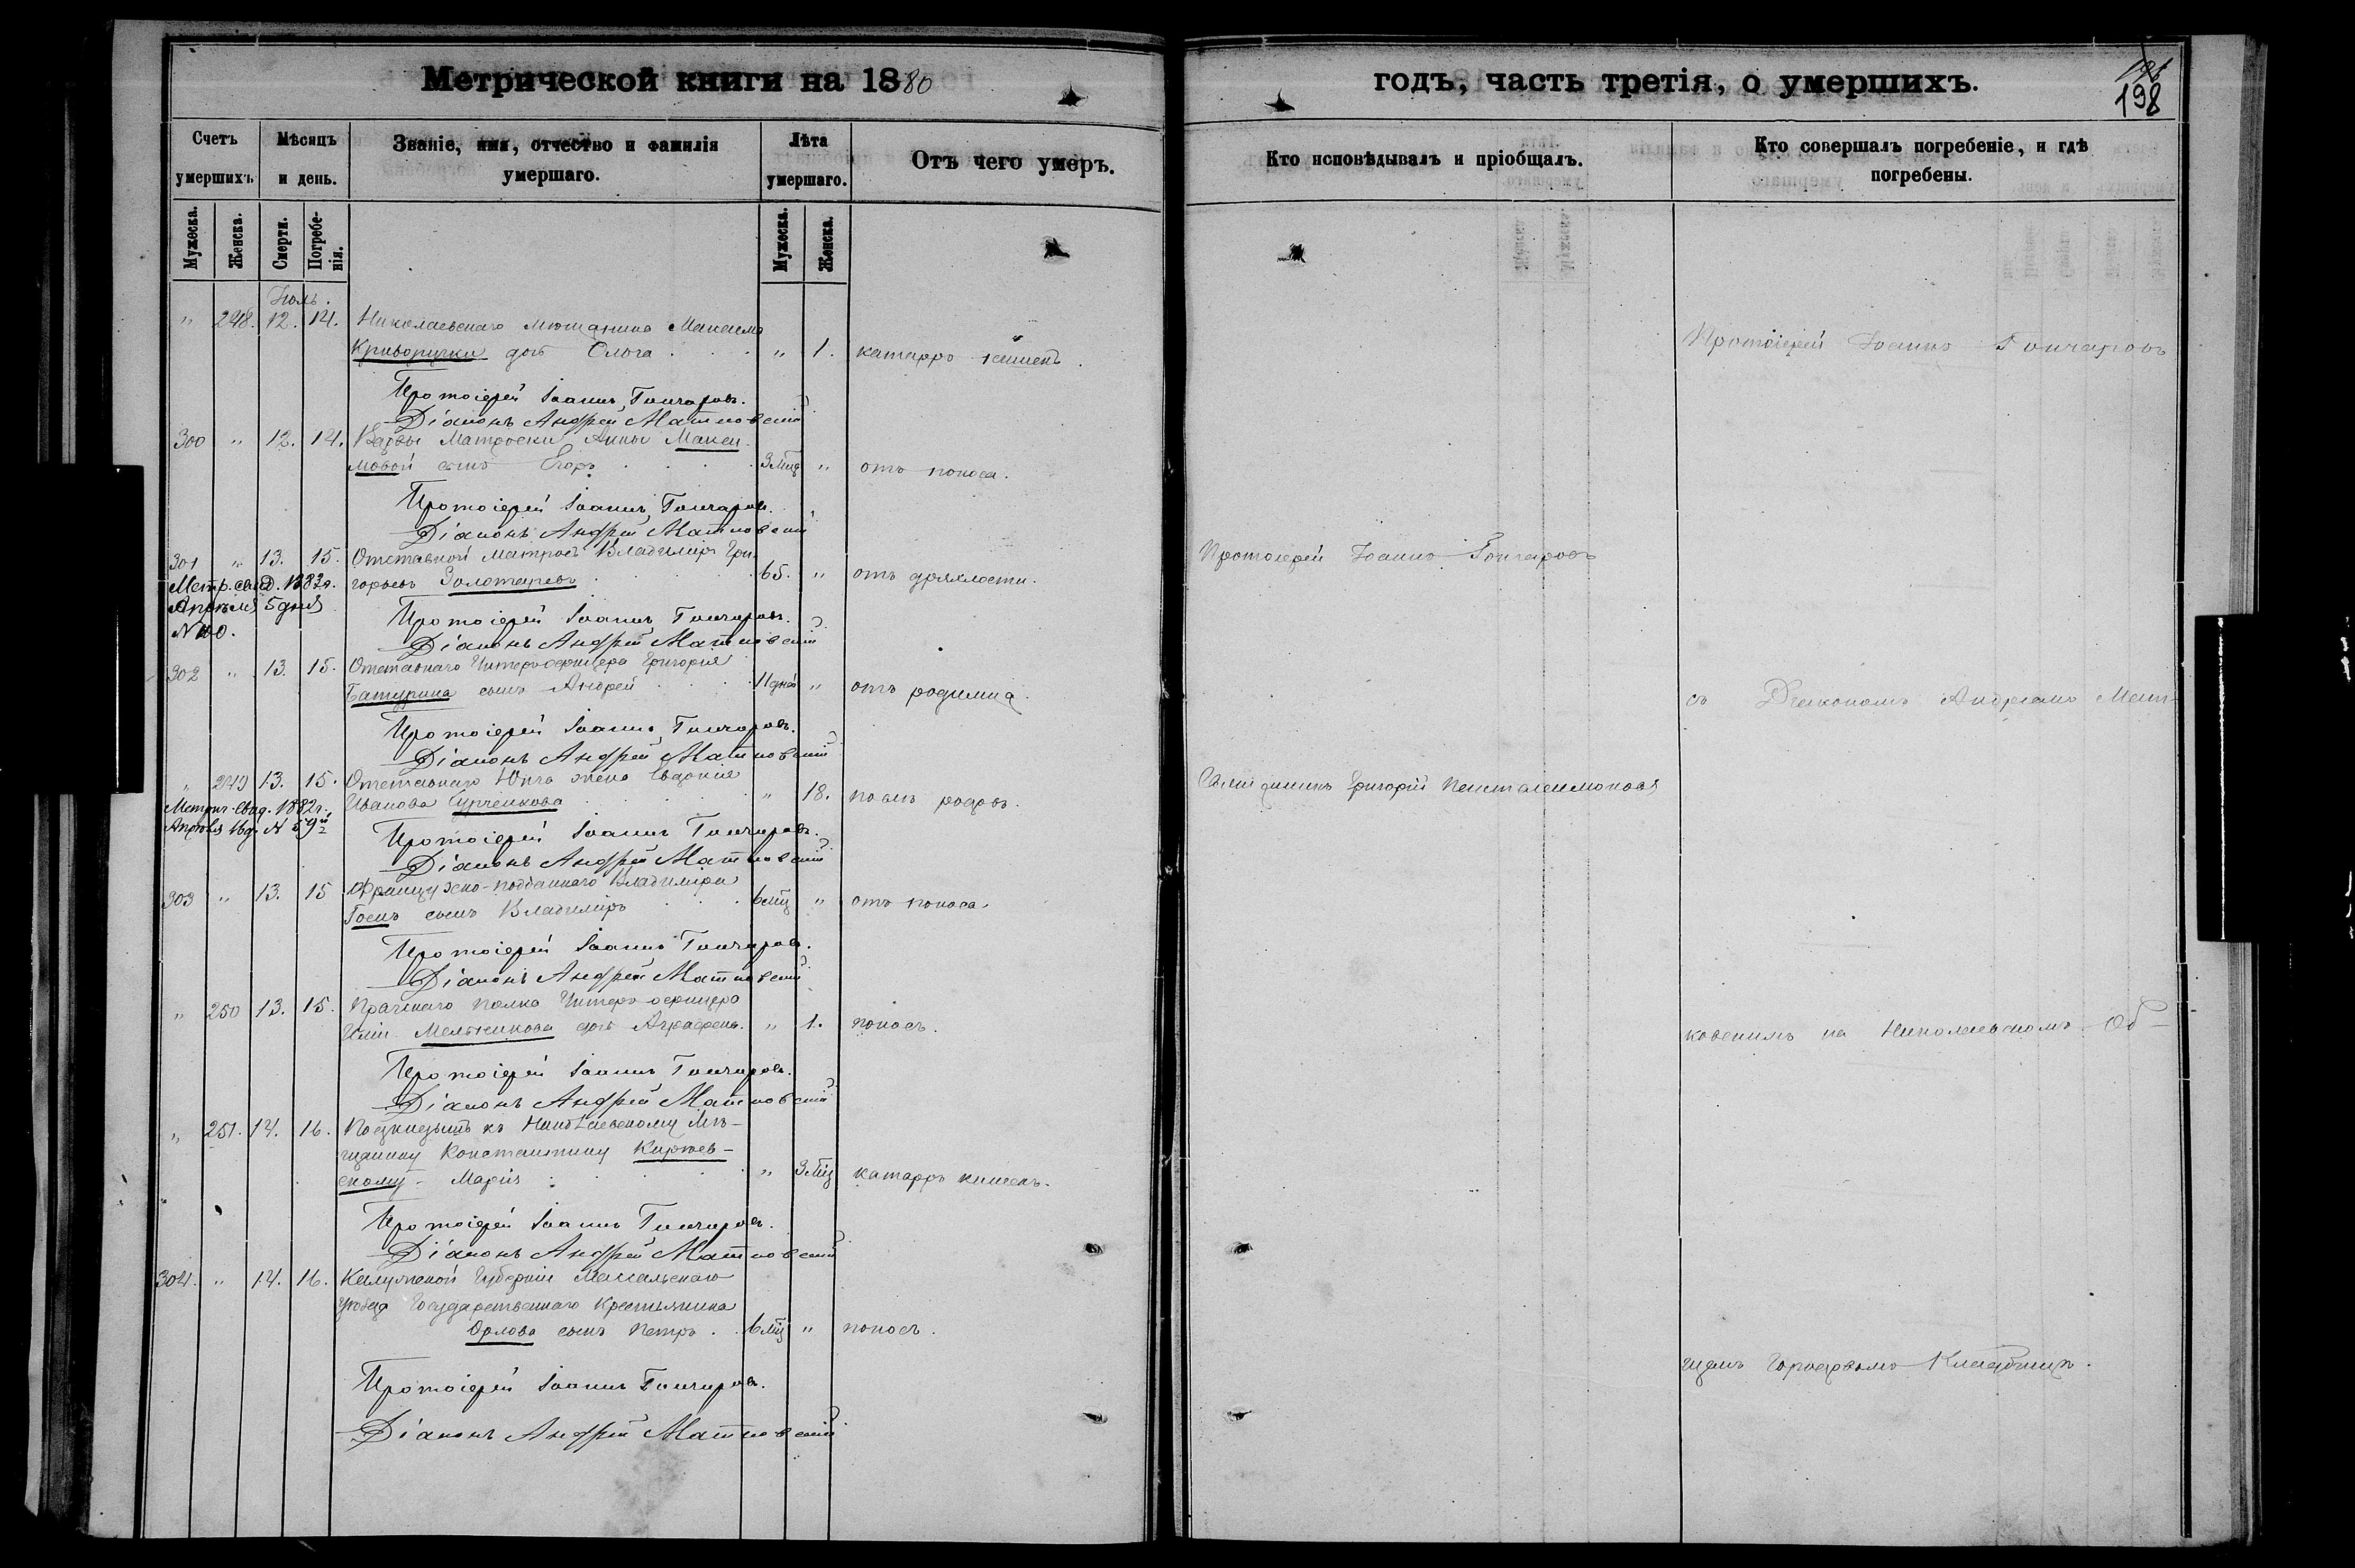 Метрической книги на 1880
годъ, часть третія, о умершихъ.
198
Счетъ умершихъ
Мѣсяцъ и день.
Званіе, имя, отчество и фамилія умершаго.
Лѣта умершаго.
Отъ чего умеръ.
Кто исповѣдывалъ и пріобщалъ.
Кто совершалъ погребеніе, и гдѣ погребены.
Мужеска. Женска. Смерти. Погребенія. Мужеска. Женска.
Іюль.
" 248. 12. 14. Николаевскаго мѣщанина Максима
Криворучки дочь Ольга . . . " 1. катарръ кишекъ.
Протоіерей Іоаннъ Гончаровъ
Протоіерей Іоаннъ Гончаровъ.
Діаконъ Андрей Матковскій
300 " 12. 14. Вдовы Матроски Анны Макси-
мовой сынъ Егоръ . . . . 3 мѣс " отъ поноса.
Протоіерей Іоаннъ Гончаровъ.
Діаконъ Андрей Матковскій
301 " 13. 15. Отставной Матросъ Владиміръ Гри-
горьевъ Золотаревъ . . . . 65. " отъ дряхлости.
Протоіерей Іоаннъ Гончаровъ
Метр. свид. 1883 г.
Апрѣля 5 дня
N 100.
Протоіерей Іоаннъ Гончаровъ.
Діаконъ Андрей Матковскій
302 " 13. 15. Отставнаго Унтеръ-офицера Григорія
Батурина сынъ Андрей . . . 11 дней " отъ родимца.
съ Діакономъ Андреемъ Мат-
Протоіерей Іоаннъ Гончаровъ.
Діаконъ Андрей Матковскій
" 249 13. 15. Отставнаго Юнга жена Евдокія
Иванова Сурченкова . . . . " 18. послѣ родовъ.
Священникъ Григорій Пенталеимоновъ
Метрич. свид. 1882 г.
Апрѣля 16 д. N 59й
Протоіерей Іоаннъ Гончаровъ.
Діаконъ Андрей Матковскій
303 " 13. 15 Французско-подданнаго Владиміра
сынъ Владиміръ . . . 6 мѣц " отъ поноса.
Протоіерей Іоаннъ Гончаровъ.
Діаконъ Андрей Матковскій
" 250 13. 15. Пражскаго полка Унтеръ-офицера
Мельникова дочь Аграфена. " 1. поносъ.
ковскимъ на Николаевскомъ Об-
Протоіерей Іоаннъ Гончаровъ.
Діаконъ Андрей Матковскій
" 251. 14. 16. Подкидышъ къ Николаевскому Мѣ-
щанину Константину Киржев-
скому - Марія . . . . " 3 мѣц катарръ кишекъ.
Протоіерей Іоаннъ Гончаровъ.
Діаконъ Андрей Матковскій
304. " 14. 16. Калужской Губерніи Масальскаго
уѣзда Государственнаго Крестьянина
Орлова сынъ Петръ . . 6 мѣц " поносъ.
щемъ Городовомъ Кладбищѣ.
Протоіерей Іоаннъ Гончаровъ.
Діаконъ Андрей Матковскій